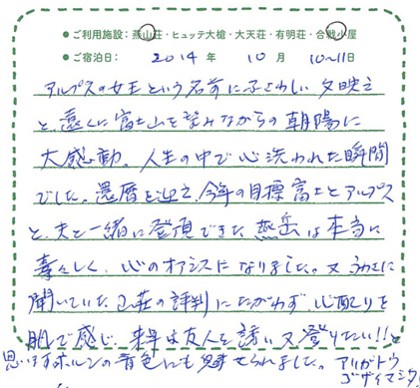 ● ご利用施設：燕山荘・ヒュッテ大槍・大天荘・有明荘・合戦小屋
● ご宿泊日： 2014 年 10 月 10〜11 日
アルプスの女王という名前にふさわしい夕映え
と、遠くに富士山を望みながらの朝陽に
大感動。人生の中で心洗われた瞬間
でした。還暦を迎え、今年の目標富士とアルプス
と、夫と一緒に登頂できた燕岳は本当に
清々しく、心のオアシスになりました。又、うわさに
聞いていた山荘の評判にたがわず、心配りを
肌で感じ、来年は友人を誘い又登りたい!!と
思いますホルンの音色にも魅せられました。アリガトウ
ゴザイマシタ